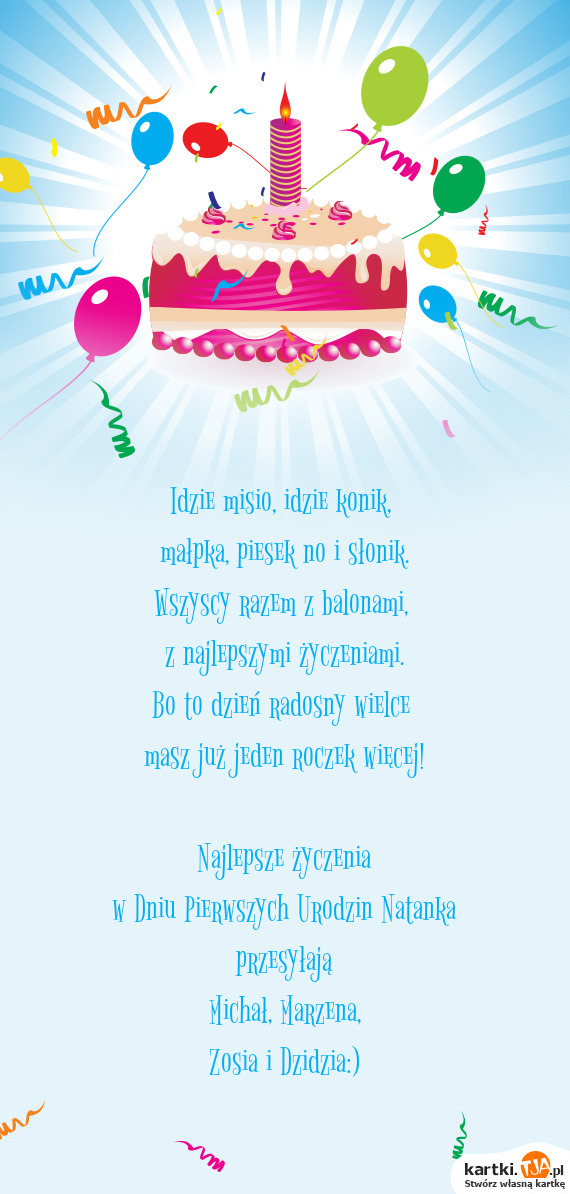 Idzie misio, idzie konik,
małpka, piesek no i słonik.
Wszyscy razem z balonami,
z najlepszymi życzeniami.
Bo to dzień radosny wielce
masz już jeden roczek więcej!
Najlepsze życzenia
w Dniu Pierwszych Urodzin Natanka
przesyłają
Michał, Marzena,
Zosia i Dzidzia:)
kartki.TJA.pl
Stwórz własną kartkę